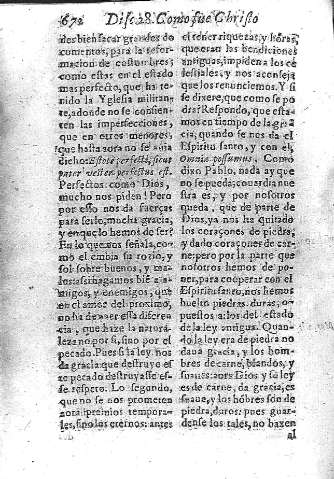 672 Disc.28. Como fue Christo
des bien sacar grandes do
cumentos, para la refor-
macion de costumbres;
como estas en el estado
mas perfecto, que ha te
nido la Yglesia militan
te, adonde no se consien-
ten las imperfecciones,
que en otros menores,
que hasta aora no se auia
dicho: Estote perfecti, sicut
pater vester perfectus est.
Perfectos como Dios,
mucho nos piden! Pero
por esso nos da fuerças
para serlo, mucha gracia,
y en que lo hemos de ser?
En lo que nos señala, co-
mo el embia su rozio, y
sol sobre buenos, y ma-
los: assi hagamos bié a a-
migos, y enemigos, que
en el amor del proximo,
no ha de auer esta diferen
cia, que haze la natura-
leza no por si, sino por el
pecado. Pues si la ley nos
da gracia que destruyo es
te pecado destruyasse es-
se respeto. Lo segundo,
que no se nos prometen
aora premios tempora-
les, sino los eternos: antes
el tener riquezas, y hõras,
que eran las bendiciones
antiguas, impiden a los ce
lestiales, y nos aconseja
que los renunciemos. Y si
se dixere, que como se po
dra? Respondo, que esta-
mos en tiempo de la gra-
cia, quando se nos da el
Espiritu santo, y con el,
Omnia possumus. Como
dixo Pablo, nada ay que
no se pueda; couardia nue
stra es, y por nosotros
queda, que de parte de
Dios, ya nos ha quitado
los coraçones de piedra,
y dado coraçones de car-
ne: pero por la parte que
nosotros hemos de po-
ner, para cooperar con el
Espiritu santo, nos hemos
buelto piedras duras, o-
puestos a los del estado
de la ley antigua. Quan-
do la ley era de piedra no
daua gracia, y los hom-
bres de carne, blandos, y
suaues: aora Dios y su ley
es de carne, da gracia, es
suaue, y los hõbres son de
piedra, duros: pues guar-
dense los tales, no hazen
al